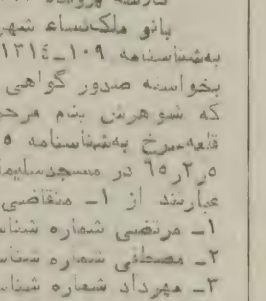 بانو ملک‌نساء شهر
بشناسنامه ۱۰۹_۱۳۱٤
بخواسته صدور گواهی
که شوهرش بنام مرحو
قلعه‌سرخ بشناسنامه ٥
٥ر۲ر٦٥ در مسجدسلیما
عبارتند از ۱_ متقاضی
۱_ مرتضی شماره شناس
۲_ مصطفی شماره شناس
۳_ مهرداد شماره شناس